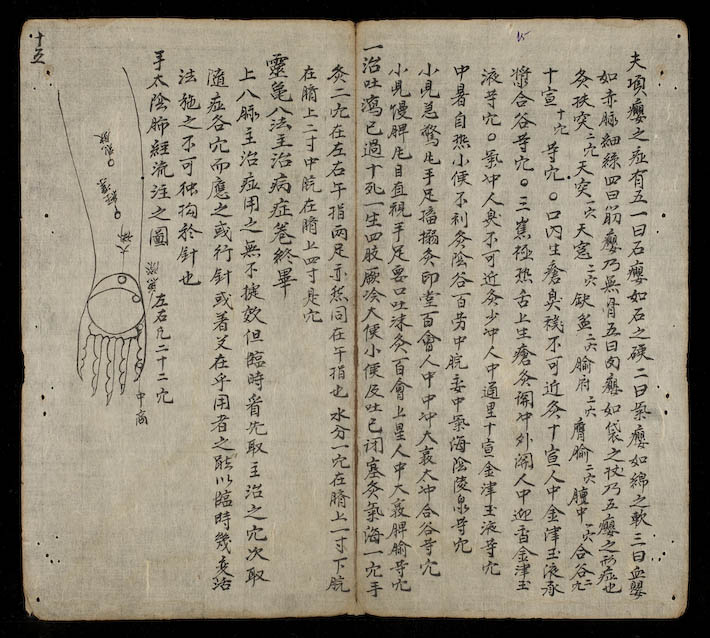 夫項癭之症有五一曰石癭如石之硬二曰氣癭如綿之軟三曰血癭
如赤脉細絲四曰筋癭乃無骨五曰肉癭如袋之狀乃五癭之形症也
灸扶突二穴天突一穴天窓二穴缺盆二穴腧府二穴膺腧二穴膻中一穴合谷二穴
十宣十穴等穴○口內生瘡臭穢不可近灸十宣人中金津玉液承
漿合谷等穴○三焦極热舌上生瘡灸関冲外関人中迎香金津玉
液等穴○氣冲人臭不可近灸少冲人中通里十宣金津玉液等穴
中暑自热小便不利灸陰谷百劳中脘委中氣海陰陵泉等穴
小兒急驚凡手足搐搦灸印堂百會人中中冲大敦太冲合谷等穴
小兒慢脾凡目直視手足 口吐沫灸百會上星人中大敦脾腧等穴
一治吐瀉已過十死一生四肢厥冷大便小便及吐已闭塞灸氣海一穴手
灸二穴在左右午指兩足亦然同在午指也水分一穴在臍上一寸下脘
在臍上二寸中脘在臍上四寸是穴
靈亀八法主治病症卷終畢
上八脉主治症用之無不捷效但臨時看先取主治之穴次取
隨症各穴而應之或行針或着艾在乎用者之能以臨時幾变活
法施之不可独拘於針也
手太陰肺經流注之圖
左右凡二十二穴
列缺
經渠
太淵
魚際
中商
十五